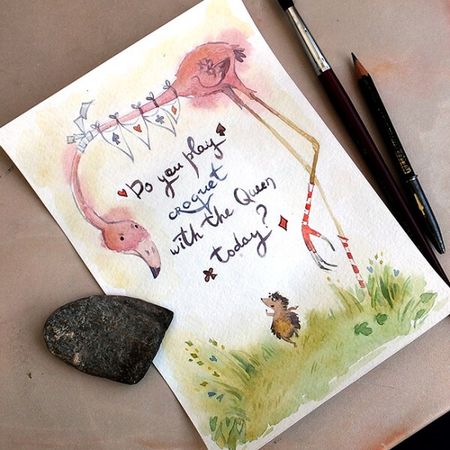 Do you play
croquet
with the Queen
today?